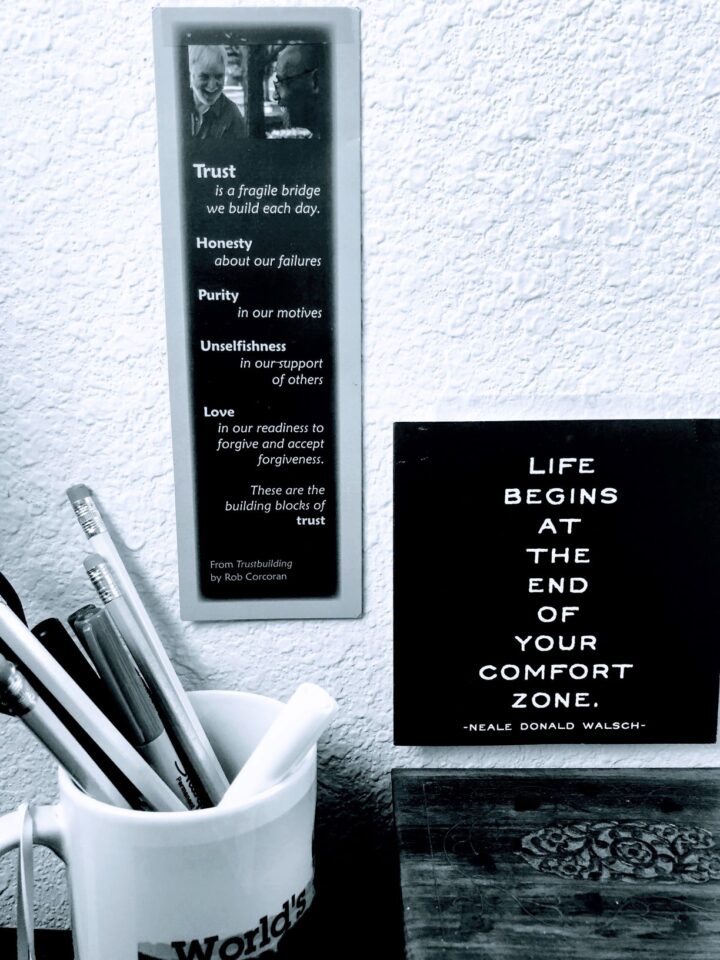 Trust
is a fragile bridge
we build each day.
Honesty
about our failures
Purity
in our motives
Unselfishness
in our support
of others
Love
in our readiness to
forgive and accept
forgiveness.
These are the
building blocks of
trust
From Trustbuilding
by Rob Corcoran
LIFE
BEGINS
AT
THE
END
OF
YOUR
COMFORT
ZONE.
-NEALE DONALD WALSCH-
World's